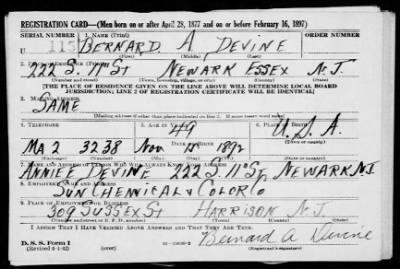 REGISTRATION CARD—(Men born on or after April 28, 1877 and on or before February 16, 1897)
SERIAL NUMBER 1. NAME (Print) ORDER NUMBER
U 115 BERNARD A. DEVINE
(First) (Middle) (Last)
222 S. 11 ST NEWARK ESSEX N.J.
(Number and street) (Town, township, village, or city) (County) (State)
[THE PLACE OF RESIDENCE GIVEN ON THE LINE ABOVE WILL DETERMINE LOCAL BOARD
JURISDICTION; LINE 2 OF REGISTRATION CERTIFICATE WILL BE IDENTICAL]
SAME
4. TELEPHONE 5. AGE IN YEARS 6. PLACE OF BIRTH
49 U.S.A.
MA 2 3238 Nov 1892
7. NAME AND ADDRESS OF PERSON WHO WILL ALWAYS KNOW YOUR ADDRESS
ANNIE DEVINE 222 S. 11 ST. NEWARK N.J.
8. EMPLOYER'S NAME AND ADDRESS
SUN CHEMICAL & COLOR CO
9. PLACE OF EMPLOYMENT OR BUSINESS
309 SUSSEX ST HARRISON N.J.
(Number and street or R. F. D. number) (Town) (County) (State)
I AFFIRM THAT I HAVE VERIFIED ABOVE ANSWERS AND THAT THEY ARE TRUE.
D. S. S. Form 1
(Revised 4-1-42) Bernard A Devine